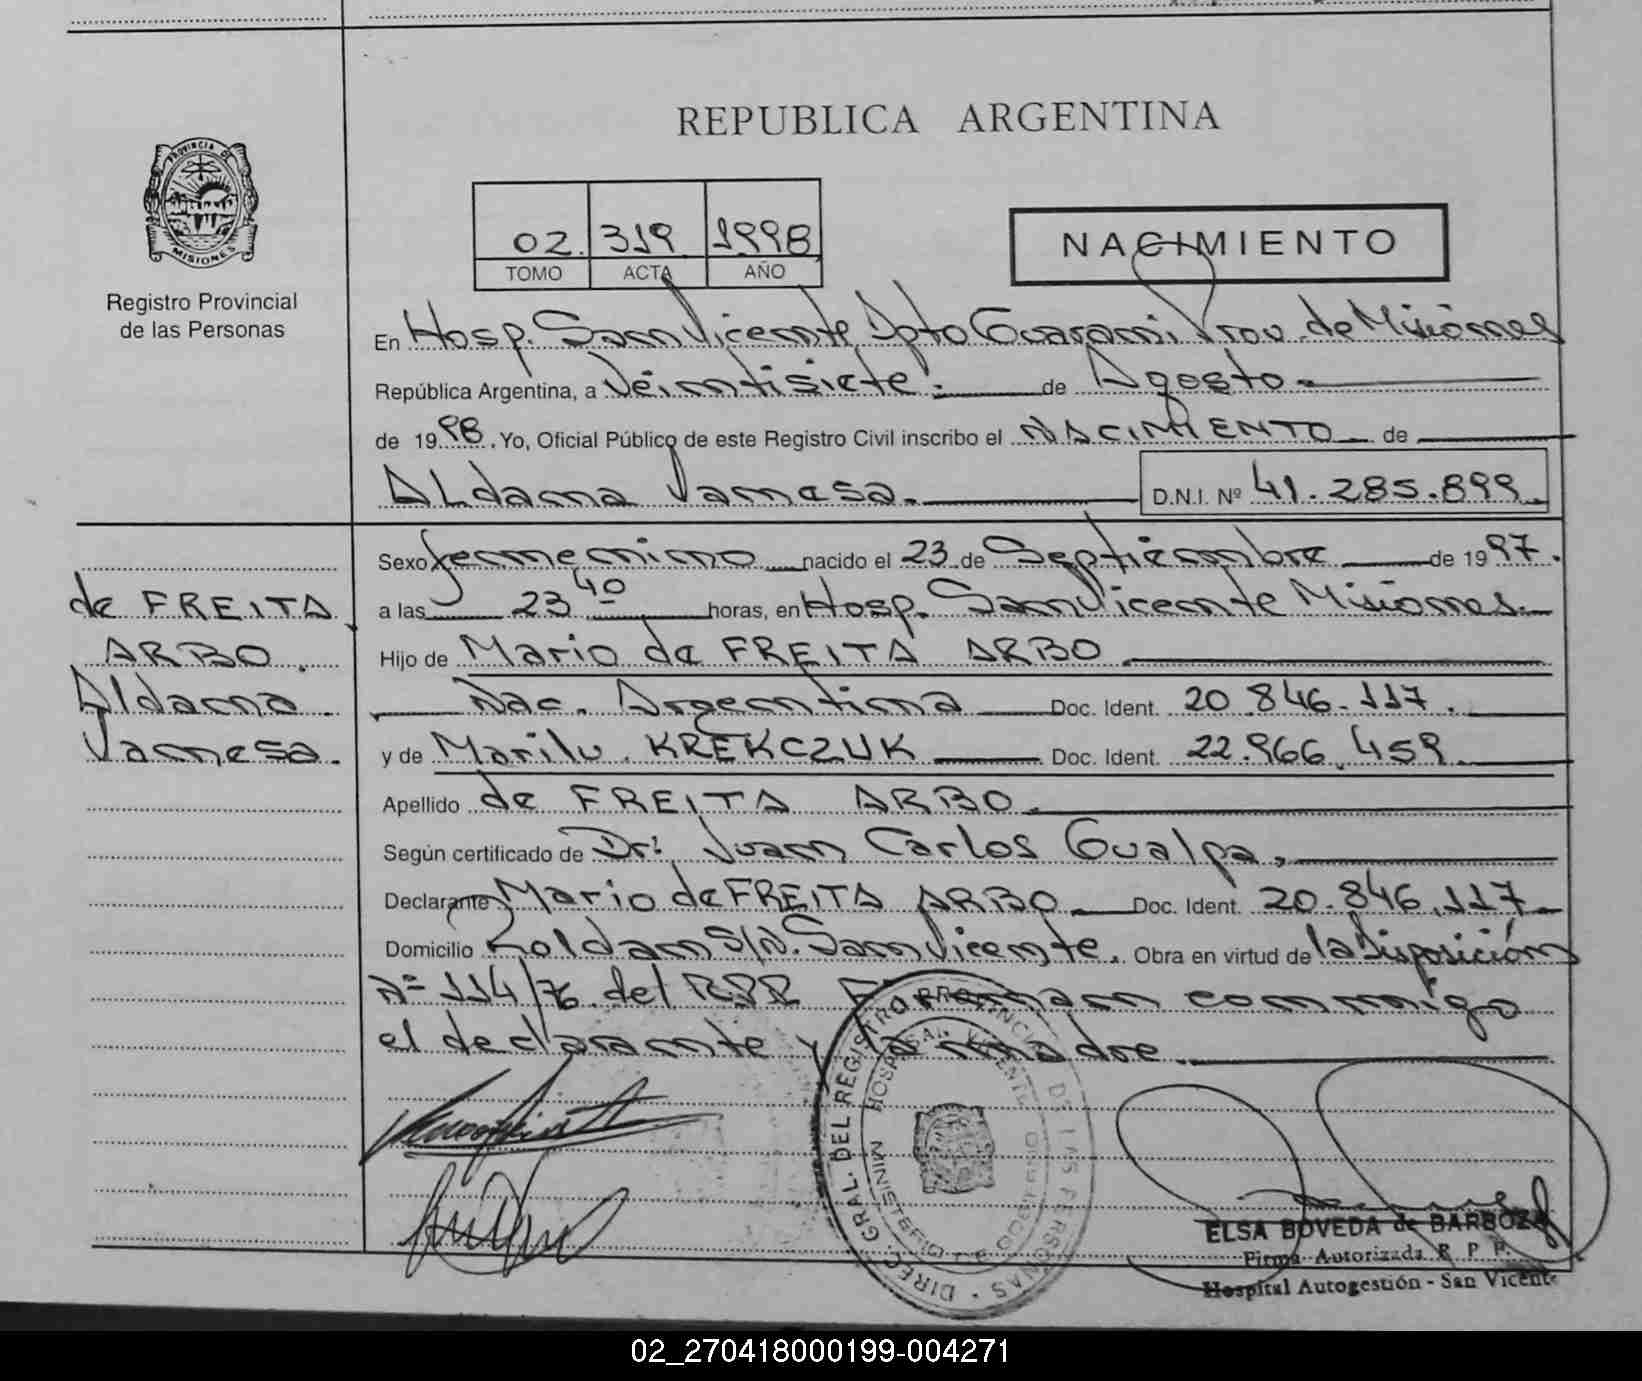 REPUBLICA ARGENTINA
PROVINCIA DE
MISIONES
Registro Provincial
de las Personas
02. 319 1998
TOMO ACTA AÑO
NACIMIENTO
En Hosp. San Vicente, Dpto Guarani, Prov. de Misiones
República Argentina, a Veintisiete. de Agosto.
de 1998. Yo, Oficial Público de este Registro Civil inscribo el NACIMIENTO de
ALdana Vanesa. D.N.I. Nº 41.285.899.
Sexo femenino nacido el 23 de Septiembre de 1997.
a las 23 40 horas, en Hosp. San Vicente Misiones.
Hijo de Mario de FREITA ARBO
Nac. Argentina Doc. Ident. 20.846.117.
y de Marilu KREKCZUK Doc. Ident. 22.966.459
Apellido de FREITA ARBO.
Según certificado de Dr: Juan Carlos Gualpa,
Declarante Mario de FREITA ARBO Doc. Ident. 20.846.117
Domicilio Roldan S/N. San Vicente. Obra en virtud de la Disposición
Nº 114/76 del RPP Firman conmigo
el declarante y la madre.
de FREITA
ARBO.
Aldana
Vanesa.
DIREC. GRAL. DEL REGISTRO PROVINCIAL DE LAS PERSONAS
HOSP. SAN VICENTE
MINISTERIO DE GOBIERNO
ELSA BOVEDA de BARBOZA
Firma Autorizada R. P. P.
Hospital Autogestión - San Vicente
02_270418000199-004271